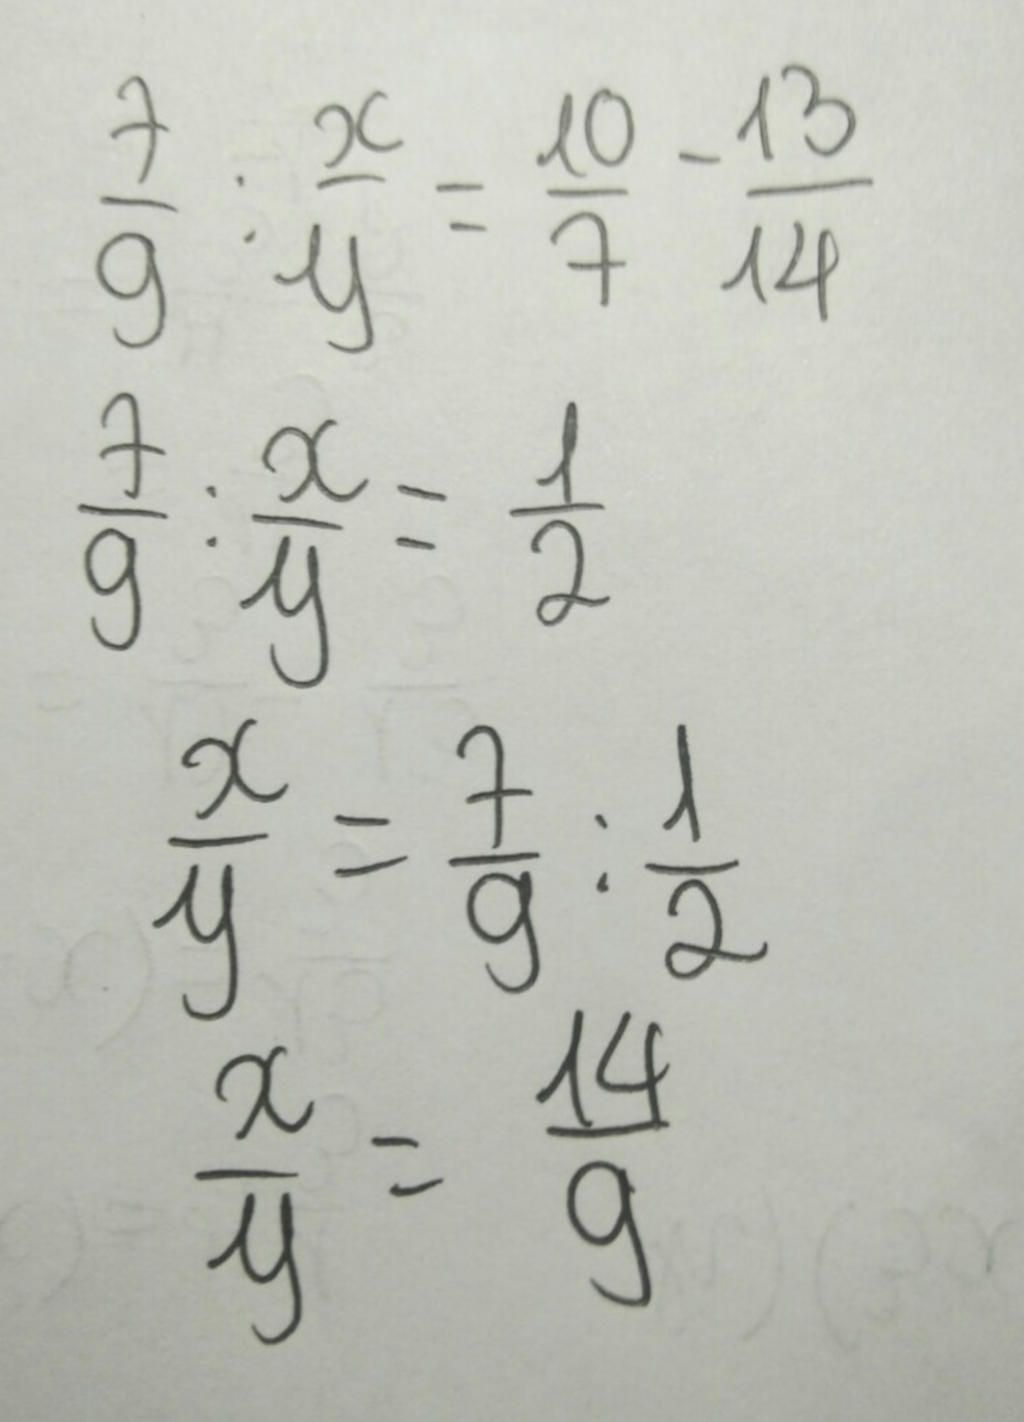 7/9 : x/y = 10/7 - 13/14
7/9 : x/y = 1/2
x/y = 7/9 : 1/2
x/y = 14/9